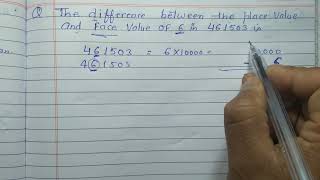 Q The differrence between the place value
and Face value of 6 in 461503 is
461503 = 6×10000 = 0000
461503 6